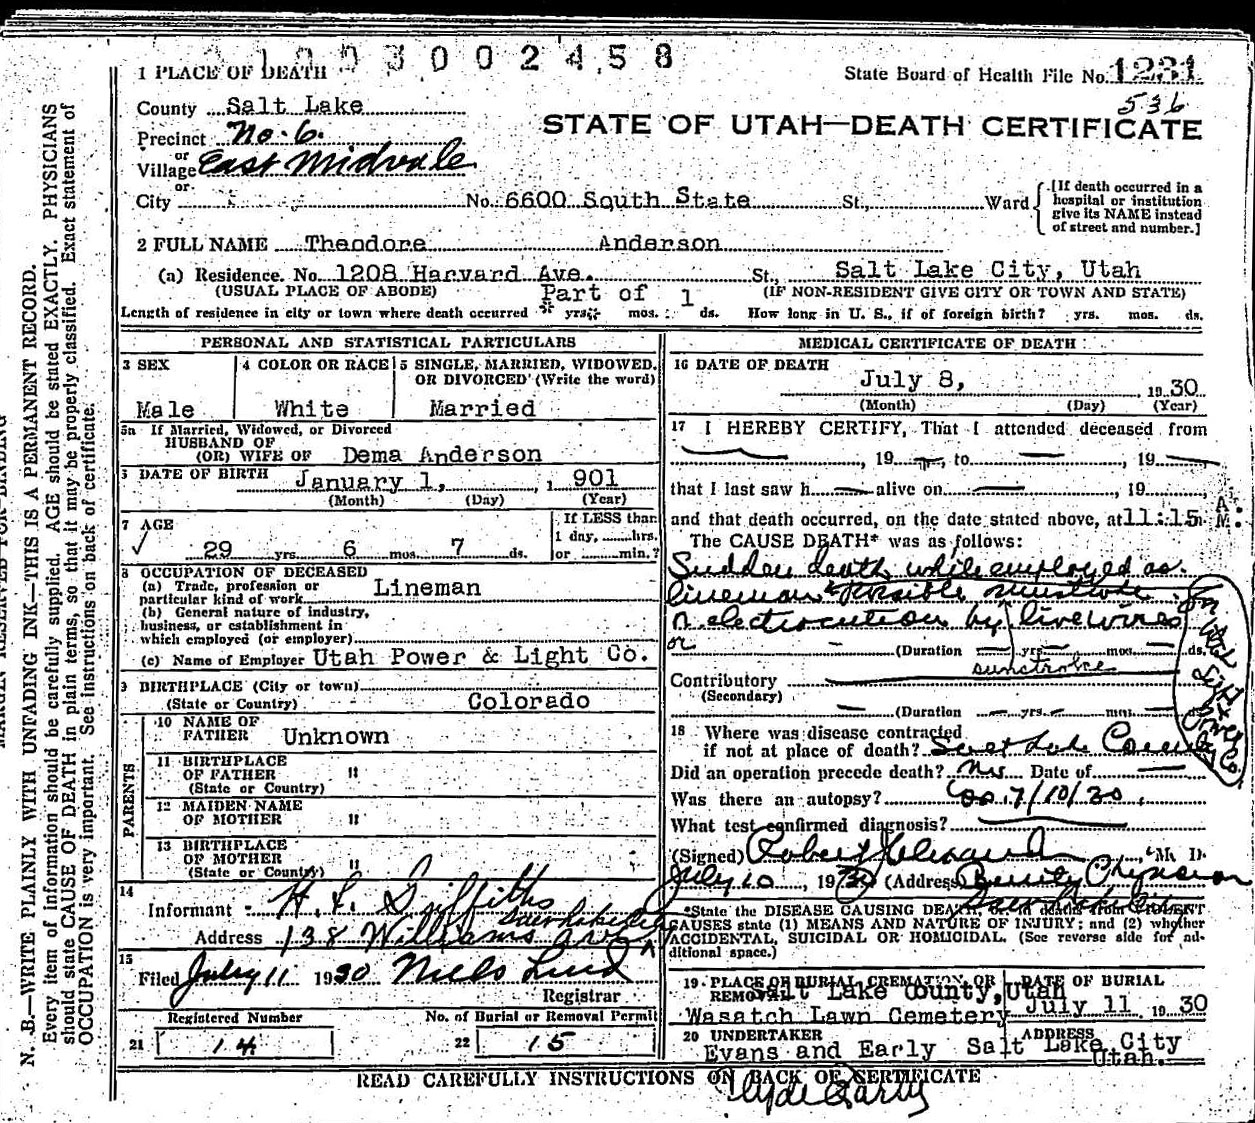 3 0 0 2 4 5 8
1 PLACE OF DEATH
State Board of Health File No. 1231
536
County Salt Lake
Precinct No. 6.
or
Village East Midvale
or
City
STATE OF UTAH—DEATH CERTIFICATE
No. 6600 South State St., Ward
[If death occurred in a
hospital or institution
give its NAME instead
of street and number.]
2 FULL NAME Theodore Anderson
(a) Residence. No. 1208 Harvard Ave. St., Salt Lake City, Utah
(USUAL PLACE OF ABODE) (IF NON-RESIDENT GIVE CITY OR TOWN AND STATE)
Part of 1
Length of residence in city or town where death occurred yrs. mos. ds. How long in U. S., if of foreign birth? yrs. mos. ds.
PERSONAL AND STATISTICAL PARTICULARS
3 SEX
Male
4 COLOR OR RACE
White
5 SINGLE, MARRIED, WIDOWED,
OR DIVORCED (Write the word)
Married
5a If Married, Widowed, or Divorced
HUSBAND OF
(OR) WIFE OF Dema Anderson
6 DATE OF BIRTH January 1, , 901
(Month) (Day) (Year)
7 AGE
29 yrs. 6 mos. 7 ds.
If LESS than
1 day, hrs.
or min.?
8 OCCUPATION OF DECEASED
(a) Trade, profession or
particular kind of work Lineman
(b) General nature of industry,
business, or establishment in
which employed (or employer)
(c) Name of Employer Utah Power & Light Co.
9 BIRTHPLACE (City or town)
(State or Country) Colorado
PARENTS
10 NAME OF
FATHER Unknown
11 BIRTHPLACE
OF FATHER "
(State or Country)
12 MAIDEN NAME
OF MOTHER "
13 BIRTHPLACE
OF MOTHER
(State or Country) "
14
Informant H. L. Griffiths
Salt Lake City
Address 138 Williams Ave
15
Filed July 11 1930 Niels Lind
Registrar
Registered Number
21 14
No. of Burial or Removal Permit
22 15
MEDICAL CERTIFICATE OF DEATH
16 DATE OF DEATH
July 8, 1930
(Month) (Day) (Year)
17 I HEREBY CERTIFY, That I attended deceased from
, 19 , to , 19
that I last saw h alive on , 19
and that death occurred, on the date stated above, at 11:15 A. M.
The CAUSE DEATH* was as follows:
Sudden death while employed as
lineman possible sunstroke
or electrocution by live wires
or
(Duration yrs. mos. ds.
sunstroke
Contributory
(Secondary)
(Duration yrs. mos. ds.
Light &
Power
Co.
18 Where was disease contracted
if not at place of death? Salt Lake County
Did an operation precede death? No Date of
Was there an autopsy? 7/10/30
What test confirmed diagnosis?
(Signed) Robert Alexander, M. D.
July 10, 1930 (Address) County Physician
Salt Lake City
*State the DISEASE CAUSING DEATH, or, in deaths from VIOLENT
CAUSES state (1) MEANS AND NATURE OF INJURY; and (2) whether
ACCIDENTAL, SUICIDAL OR HOMICIDAL. (See reverse side for ad-
ditional space.)
19 PLACE OF BURIAL CREMATION OR
REMOVAL Salt Lake County, Utah
Wasatch Lawn Cemetery
DATE OF BURIAL
July 11 1930
20 UNDERTAKER
Evans and Early
ADDRESS
Salt Lake City
Utah.
READ CAREFULLY INSTRUCTIONS ON BACK OF CERTIFICATE
Clyde Early
MARGIN RESERVED FOR BINDING
N. B.—WRITE PLAINLY WITH UNFADING INK—THIS IS A PERMANENT RECORD.
Every item of information should be carefully supplied. AGE should be stated EXACTLY. PHYSICIANS
should state CAUSE OF DEATH in plain terms, so that it may be properly classified. Exact statement of
OCCUPATION is very important. See Instructions on back of certificate.